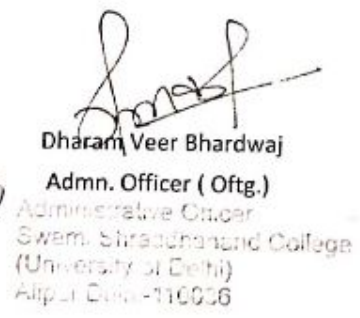 Dharam Veer Bhardwaj
Admn. Officer ( Oftg.)
Administrative Officer
Swami Shraddhanand College
(University of Delhi)
Alipur Delhi-110036